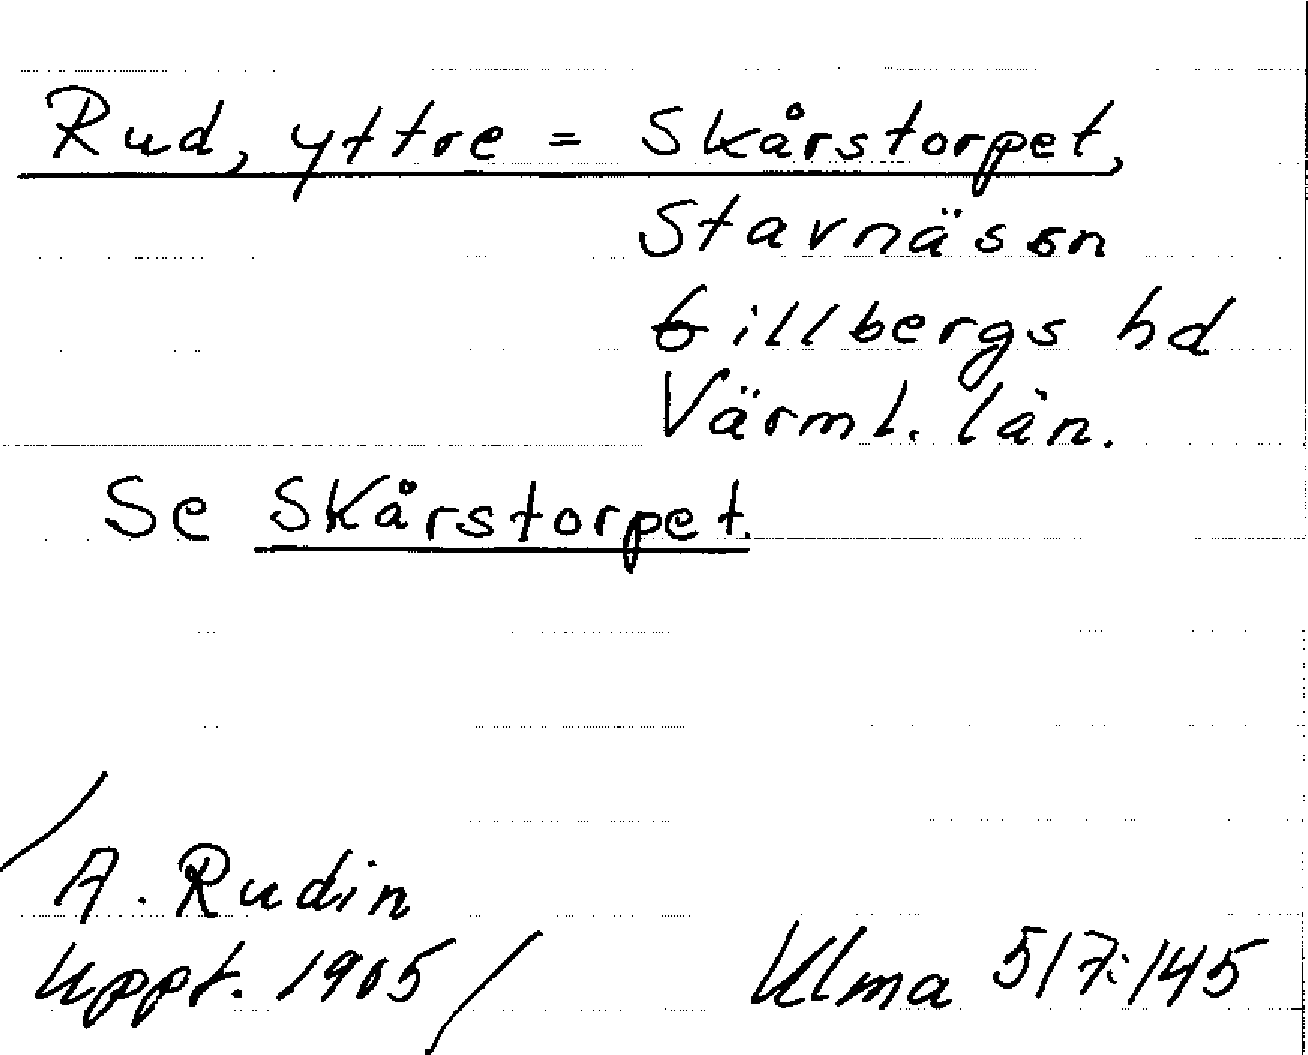 Rud, yttre = Skårstorpet,
Stavnäs sn
Gillbergs hd
Värml. län.
Se Skårstorpet.
/A. Rudin
uppt. 1905/
Ulma 517:145